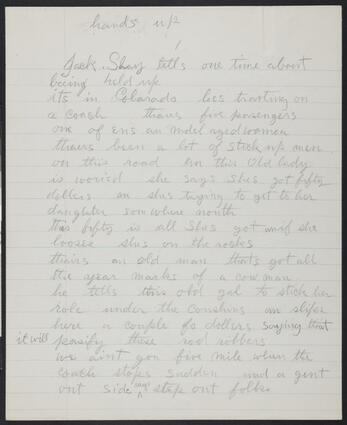 hands up
Jack Shay tells one time about
being held up
its in Colorado hes traviling on
a coash thairs five pasengers
one of ens an midel aged women
thairs been a lot of stick up men
on this road an this old lady
is woried she says shes got fifty
dollers an shes trying to get to her
daughter somwhere north
this fifty is all shes got an if she
looses shes on the rocks
thairs an old man thats got all
the year marks of a cow man
he tells this old gal to stick her
role under the coushins an slip
here a couple fo dollers saying that
it will pasify these rod robbers
we aint gon five mile when the
coach stops sudden and a gent
out side says step out folks